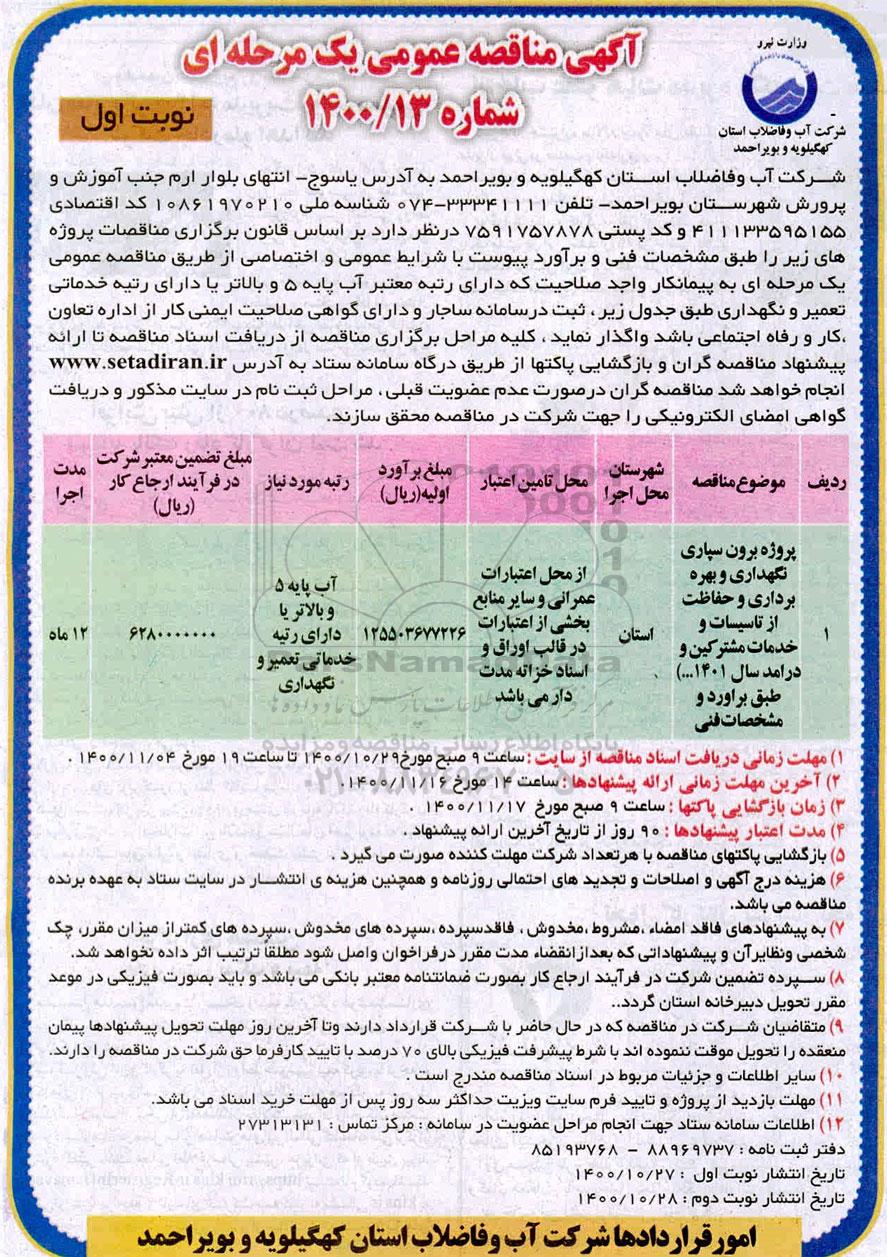 وزارت نیرو
شرکت آب وفاضلاب استان
کهگیلویه و بویراحمد
آگهی مناقصه عمومی یک مرحله ای
شماره ۱۴۰۰/۱۳
نوبت اول
شرکت آب وفاضلاب استان کهگیلویه و بویراحمد به آدرس یاسوج- انتهای بلوار ارم جنب آموزش و
پرورش شهرستان بویراحمد- تلفن ۳۳۳۴۱۱۱۱-۰۷۴ شناسه ملی ۱۰۸۶۱۹۷۰۲۱۰ کد اقتصادی
۴۱۱۱۳۳۵۹۵۱۵۵ و کد پستی ۷۵۹۱۷۵۷۸۷۸ درنظر دارد بر اساس قانون برگزاری مناقصات پروژه
های زیر را طبق مشخصات فنی و برآورد پیوست با شرایط عمومی و اختصاصی از طریق مناقصه عمومی
یک مرحله ای به پیمانکار واجد صلاحیت که دارای رتبه معتبر آب پایه ۵ و بالاتر یا دارای رتبه خدماتی
تعمیر و نگهداری طبق جدول زیر ، ثبت درسامانه ساجار و دارای گواهی صلاحیت ایمنی کار از اداره تعاون
،کار و رفاه اجتماعی باشد واگذار نماید ، کلیه مراحل برگزاری مناقصه از دریافت اسناد مناقصه تا ارائه
پیشنهاد مناقصه گران و بازگشایی پاکتها از طریق درگاه سامانه ستاد به آدرس www.setadiran.ir
انجام خواهد شد مناقصه گران درصورت عدم عضویت قبلی ، مراحل ثبت نام در سایت مذکور و دریافت
گواهی امضای الکترونیکی را جهت شرکت در مناقصه محقق سازند.
ردیف
موضوع مناقصه
شهرستان
محل اجرا
محل تامین اعتبار
مبلغ برآورد
اولیه(ریال)
رتبه مورد نیاز
مبلغ تضمین معتبر شرکت
در فرآیند ارجاع کار
(ریال)
مدت
اجرا
۱
پروژه برون سپاری
نگهداری و بهره
برداری و حفاظت
از تاسیسات و
خدمات مشترکین و
درامد سال ۱۴۰۱...)
طبق براورد و
مشخصات فنی
استان
از محل اعتبارات
عمرانی و سایر منابع
بخشی از اعتبارات
در قالب اوراق و
اسناد خزانه مدت
دار می باشد
۱۲۵۵۰۳۶۷۷۲۲۶
آب پایه ۵
و بالاتر یا
دارای رتبه
خدماتی تعمیر و
نگهداری
۶۲۸۰۰۰۰۰۰۰
۱۲ ماه
۱) مهلت زمانی دریافت اسناد مناقصه از سایت : ساعت ۹ صبح مورخ۱۴۰۰/۱۰/۲۹ تا ساعت ۱۹ مورخ ۱۴۰۰/۱۱/۰۴ .
۲) آخرین مهلت زمانی ارائه پیشنهادها : ساعت ۱۴ مورخ ۱۴۰۰/۱۱/۱۶.
۳) زمان بازگشایی پاکتها : ساعت ۹ صبح مورخ ۱۴۰۰/۱۱/۱۷ .
۴) مدت اعتبار پیشنهادها : ۹۰ روز از تاریخ آخرین ارائه پیشنهاد .
۵) بازگشایی پاکتهای مناقصه با هرتعداد شرکت مهلت کننده صورت می گیرد .
۶) هزینه درج آگهی و اصلاحات و تجدید های احتمالی روزنامه و همچنین هزینه ی انتشار در سایت ستاد به عهده برنده
مناقصه می باشد.
۷) به پیشنهادهای فاقد امضاء ،مشروط ،مخدوش ، فاقدسپرده ،سپرده های مخدوش ،سپرده های کمتراز میزان مقرر، چک
شخصی ونظایرآن و پیشنهاداتی که بعدازانقضاء مدت مقرر درفراخوان واصل شود مطلقا ترتیب اثر داده نخواهد شد.
۸) سپرده تضمین شرکت در فرآیند ارجاع کار بصورت ضمانتنامه معتبر بانکی می باشد و باید بصورت فیزیکی در موعد
مقرر تحویل دبیرخانه استان گردد..
۹) متقاضیان شرکت در مناقصه که در حال حاضر با شرکت قرارداد دارند وتا آخرین روز مهلت تحویل پیشنهادها پیمان
منعقده را تحویل موقت ننموده اند با شرط پیشرفت فیزیکی بالای ۷۰ درصد با تایید کارفرما حق شرکت در مناقصه را دارند.
۱۰) سایر اطلاعات و جزئیات مربوط در اسناد مناقصه مندرج است .
۱۱) مهلت بازدید از پروژه و تایید فرم سایت ویزیت حداکثر سه روز پس از مهلت خرید اسناد می باشد.
۱۲) اطلاعات سامانه ستاد جهت انجام مراحل عضویت در سامانه : مرکز تماس : ۲۷۳۱۳۱۳۱
دفتر ثبت نامه : ۸۸۹۶۹۷۳۷ - ۸۵۱۹۳۷۶۸
تاریخ انتشار نوبت اول : ۱۴۰۰/۱۰/۲۷
تاریخ انتشار نوبت دوم : ۱۴۰۰/۱۰/۲۸
امور قراردادها شرکت آب وفاضلاب استان کهگیلویه و بویراحمد